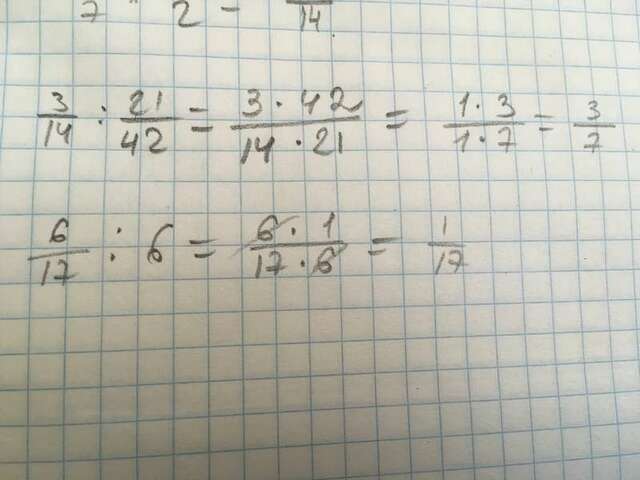 7 " 2 - 14
3/14 : 21/42 = 3 · 42 / 14 · 21 = 1 · 3 / 1 · 7 = 3/7
6/17 : 6 = 6 · 1 / 17 · 6 = 1/17